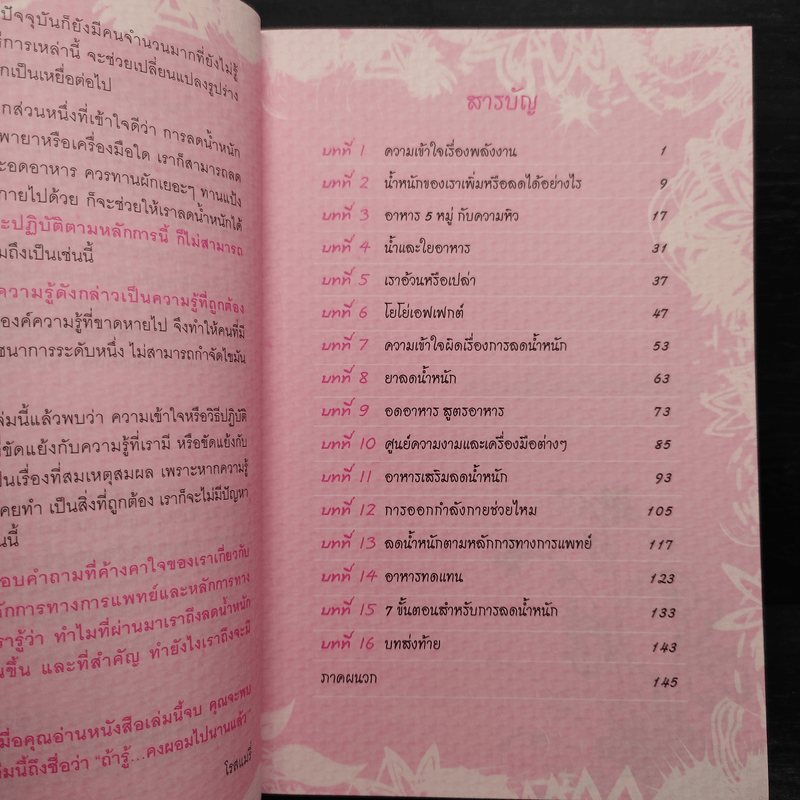 ปัจจุบันก็ยังมีคนจำนวนมากที่ยังไม่รู้
ธีการเหล่านี้ จะช่วยเปลี่ยนแปลงรูปร่าง
กเป็นเหยื่อต่อไป
กส่วนหนึ่งที่เข้าใจดีว่า การลดน้ำหนัก
พายาหรือเครื่องมือใด เราก็สามารถลด
ะอดอาหาร ควรทานผักเยอะๆ ทานแป้ง
กายไปด้วย ก็จะช่วยให้เราลดน้ำหนักได้
ะปฏิบัติตามหลักการนี้ ก็ไม่สามารถ
มถึงเป็นเช่นนี้
ความรู้ดังกล่าวเป็นความรู้ที่ถูกต้อง
องค์ความรู้ที่ขาดหายไป จึงทำให้คนที่มี
ชนาการระดับหนึ่ง ไม่สามารถกำจัดไขมัน
ล่มนี้แล้วพบว่า ความเข้าใจหรือวิธีปฏิบัติ
ขัดแย้งกับความรู้ที่เรามี หรือขัดแย้งกับ
ป็นเรื่องที่สมเหตุสมผล เพราะหากความรู้
คยทำ เป็นสิ่งที่ถูกต้อง เราก็จะไม่มีปัญหา
นนี้
อบคำถามที่ค้างคาใจของเราเกี่ยวกับ
ลักการทางการแพทย์และหลักการทาง
รารู้ว่า ทำไมที่ผ่านมาเราถึงลดน้ำหนัก
นขึ้น และที่สำคัญ ทำยังไงเราถึงจะมี
มื่อคุณอ่านหนังสือเล่มนี้จบ คุณจะพบ
ล่มนี้ถึงชื่อว่า "ถ้ารู้...คงผอมไปนานแล้ว"
โรสแมรี่
สารบัญ
บทที่ 1 ความเข้าใจเรื่องพลังงาน 1
บทที่ 2 น้ำหนักของเราเพิ่มหรือลดได้อย่างไร 9
บทที่ 3 อาหาร 5 หมู่ กับความหิว 17
บทที่ 4 น้ำและใยอาหาร 31
บทที่ 5 เราอ้วนหรือเปล่า 37
บทที่ 6 โยโย่เอฟเฟกต์ 47
บทที่ 7 ความเข้าใจผิดเรื่องการลดน้ำหนัก 53
บทที่ 8 ยาลดน้ำหนัก 63
บทที่ 9 อดอาหาร สูตรอาหาร 73
บทที่ 10 ศูนย์ความงามและเครื่องมือต่างๆ 85
บทที่ 11 อาหารเสริมลดน้ำหนัก 93
บทที่ 12 การออกกำลังกายช่วยไหม 105
บทที่ 13 ลดน้ำหนักตามหลักการทางการแพทย์ 117
บทที่ 14 อาหารทดแทน 123
บทที่ 15 7 ขั้นตอนสำหรับการลดน้ำหนัก 133
บทที่ 16 บทส่งท้าย 143
ภาคผนวก 145